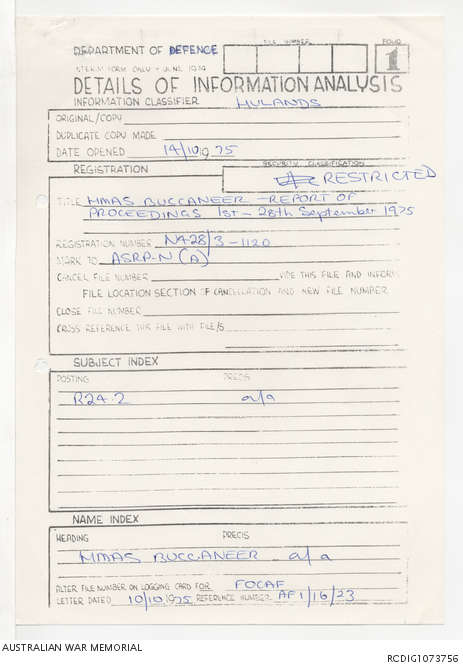 DEPARTMENT OF DEFENCE
FILE NUMBER
FOLIO
1
INTERIM FORM ONLY - JUNE 1974
DETAILS OF INFORMATION ANALYSIS
INFORMATION CLASSIFIER HYLANDS
ORIGINAL/COPY
DUPLICATE COPY MADE
DATE OPENED 14/10/1975
REGISTRATION
SECURITY CLASSIFICATION
RESTRICTED
TITLE HMAS BUCCANEER - REPORT OF
PROCEEDINGS 1st - 28th September 1975
REGISTRATION NUMBER N428/3-1120
MARK TO ASRP-N (A)
CANCEL FILE NUMBER VIDE THIS FILE AND INFORM
FILE LOCATION SECTION OF CANCELLATION AND NEW FILE NUMBER
CLOSE FILE NUMBER
CROSS REFERENCE THIS FILE WITH FILE/S
SUBJECT INDEX
POSTING PRECIS
R24.2 a/a
NAME INDEX
HEADING PRECIS
HMAS BUCCANEER a/a
ALTER FILE NUMBER ON LOGGING CARD FOR FOCAF
LETTER DATED 10/10/1975 REFERENCE NUMBER AF1/16/23
AUSTRALIAN WAR MEMORIAL
RCDIG1073756